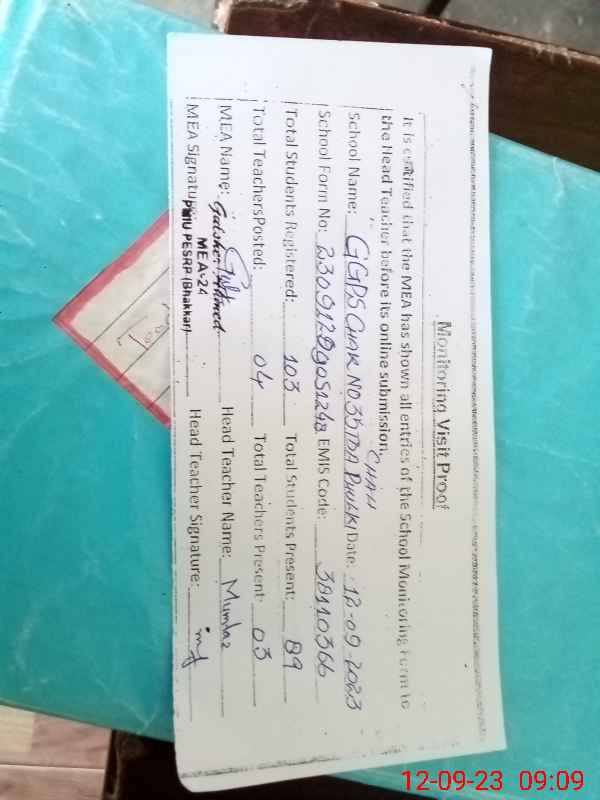 Monitoring Visit Proof
It is certified that the MEA has shown all entries of the School Monitoring Form to
the Head Teacher before its online submission.
CHAH
School Name: GGPS CHAK NO.35 TDA PHULKI Date: 12-09-2023
School Form No: EMIS Code: 38110366
Total Students Registered: 103 Total Students Present: 89
Total Teachers Posted: 04 Total Teachers Present: 03
MEA Name: Gulsher Ahmed Head Teacher Name: Mumtaz
MEA Signature: Head Teacher Signature:
MEA-24
PMIU PESRP (Bhakkar)
12-09-23 09:09